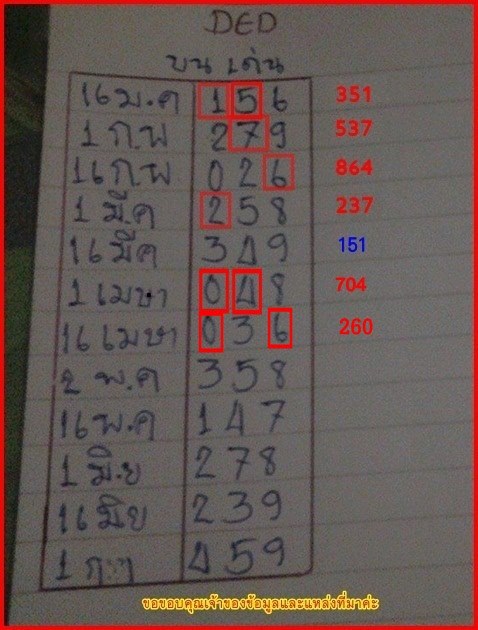 DED
บน เด่น
16 ม.ค 156 351
1 ก.พ 279 537
16 ก.พ 026 864
1 มีค 258 237
16 มีค 349 151
1 เมษา 048 704
16 เมษา 036 260
2 พ.ค 358
16 พ.ค 147
1 มิ.ย 278
16 มิย 239
1 ก.ค 459
ขอขอบคุณเจ้าของข้อมูลและแหล่งที่มาค่ะ